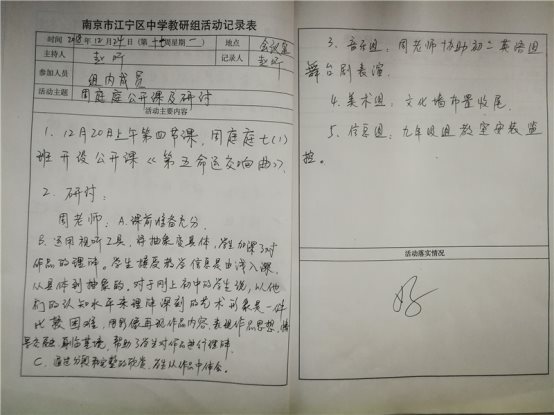 南京市江宁区中学教研组活动记录表
时间 2018年12月24日(第十七周星期一) 地点 会议室
主持人 赵昕 记录人 赵昕
参加人员 组内成员
活动主题 周庭庭公开课及研讨
活动主要内容
1. 12月20日上午第四节课,周庭庭七(1)
班开设公开课《第五命运交响曲》。
2. 研讨:
周老师:A.课前准备充分.
B.运用视听工具,将抽象变具体,学生加深了对
作品的理解。学生接受教学信息是由浅入深,
从具体到抽象的。对于刚上初中的学生说,以他
们的认知水平来理解深刻的艺术形象是一件
比较困难,用影像再现作品内容,表现作品思想,情
景交融,身临其境,帮助了学生对作品进行理解.
C.通过分段和完整的欣赏,学生从作品中体会。
3.音乐组:周老师协助初二英语组
舞台剧表演.
4.美术组:文化墙布置收尾.
5.信息组:九年级组教室安装监
控。
活动落实情况